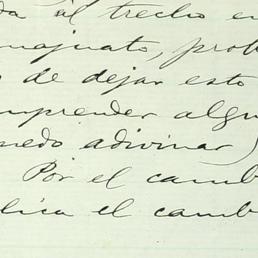 da al trecho en
najuato, prob
s de dejar esto
mprender algu
uedo adivinar)
Por el camb
plica el camb